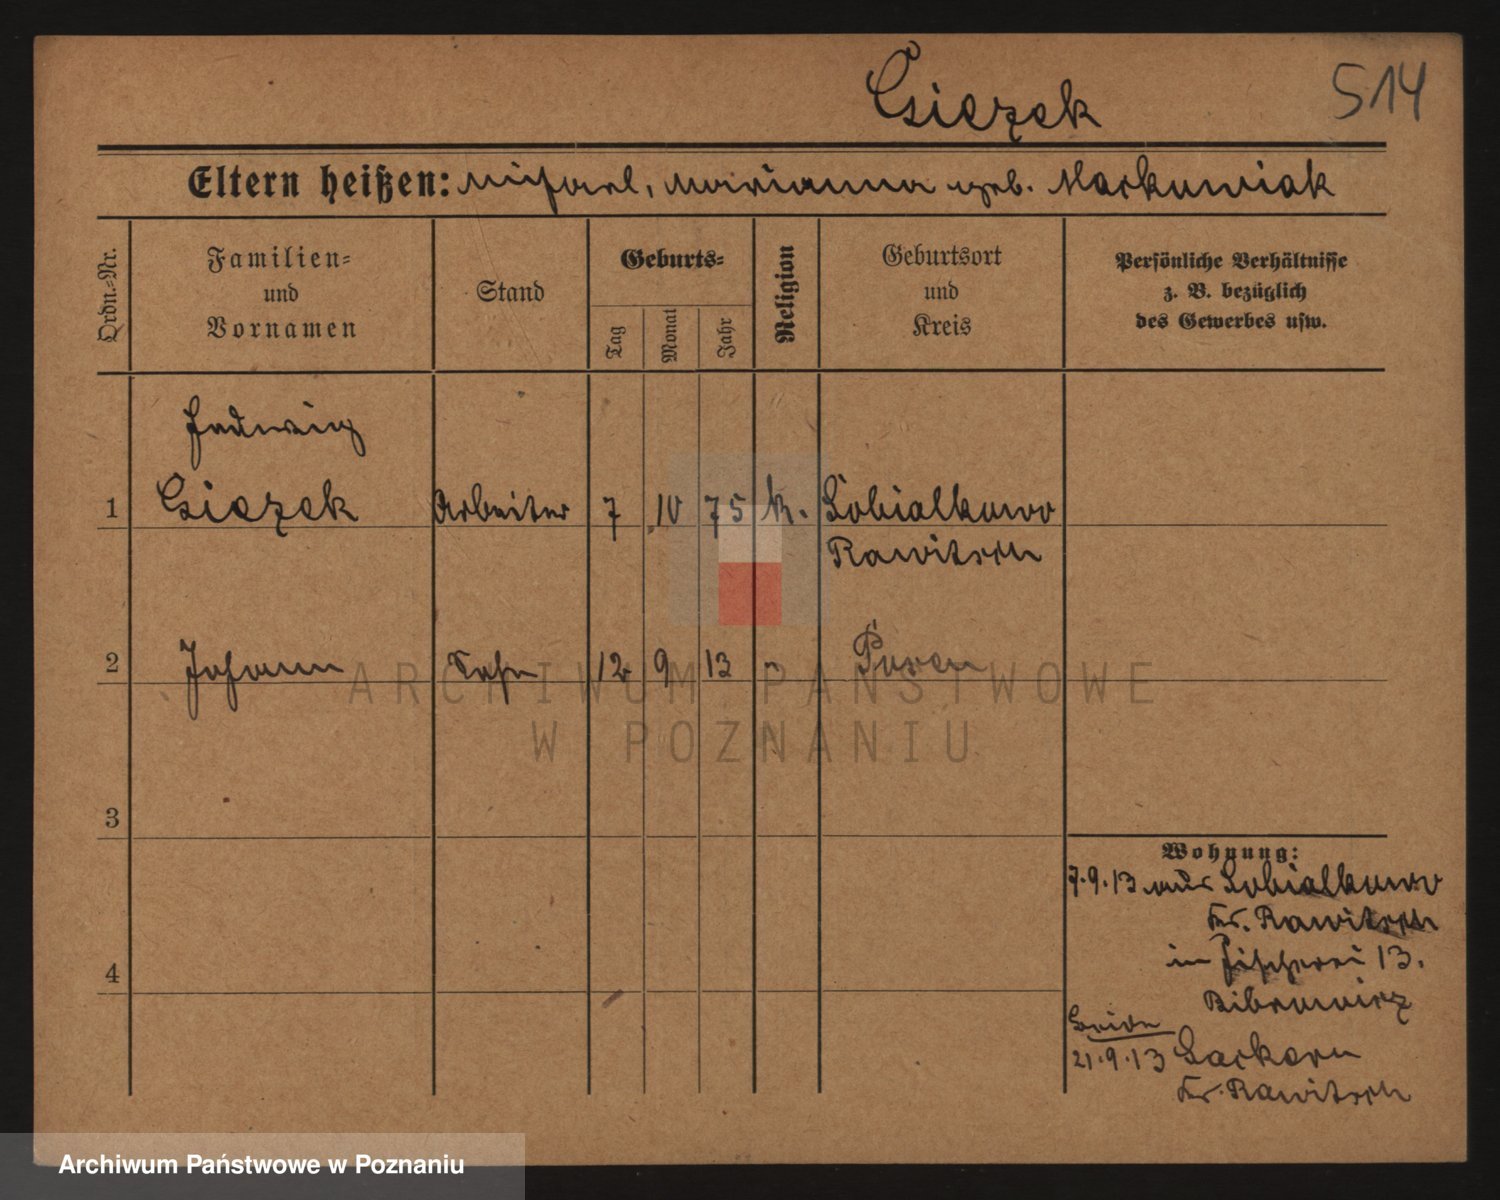 Csiezek
514
Eltern heißen: Michael, Marianna geb. Markowiak
Ordn.=Nr.
Familien=
und
Vornamen
Stand
Geburts=
Tag
Monat
Jahr
Religion
Geburtsort
und
Kreis
Persönliche Verhältnisse
z. B. bezüglich
des Gewerbes usw.
Hedwig
1 Csiezek Arbeiter 7 10 75 k. Sobialkowo
Rawitsch
2 Johann Sohn 12 9 13 " Posen
3
4
Wohnung:
7.9.13 aus Sobialkowo
Kr. Rawitsch
in Fischerei 13.
Bibrowicz
Beide
21.9.13 Sarkern
Kr. Rawitsch
ARCHIWUM PAŃSTWOWE
W POZNANIU
Archiwum Państwowe w Poznaniu